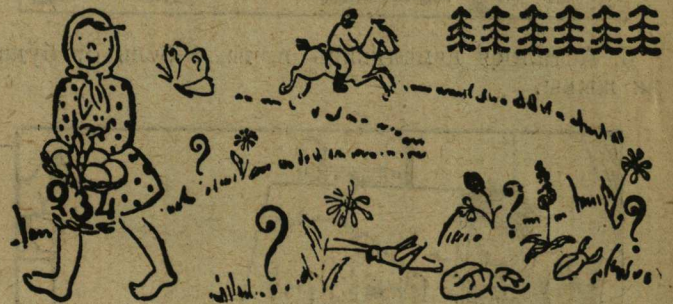 ?
934
? ? ?